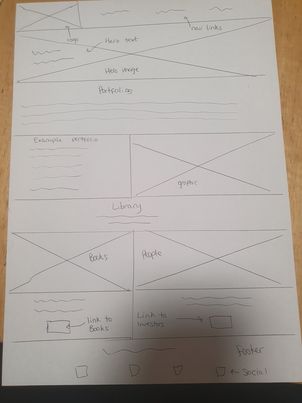 logo
nav links
Hero text
Hero image
Portfolios
Example portfolio
graphic
Library
Books
People
link to
Books
Link to
Investors
Footer
Social